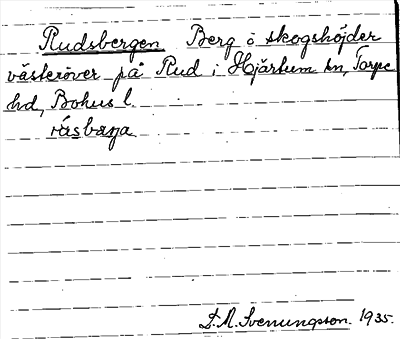 Rudsbergen Berg o skogshöjder
västeröver på Rud i Hjärtum sn, Torpe
hd, Bohus l.
rásbæga
D. A. Svenungsson. 1935.